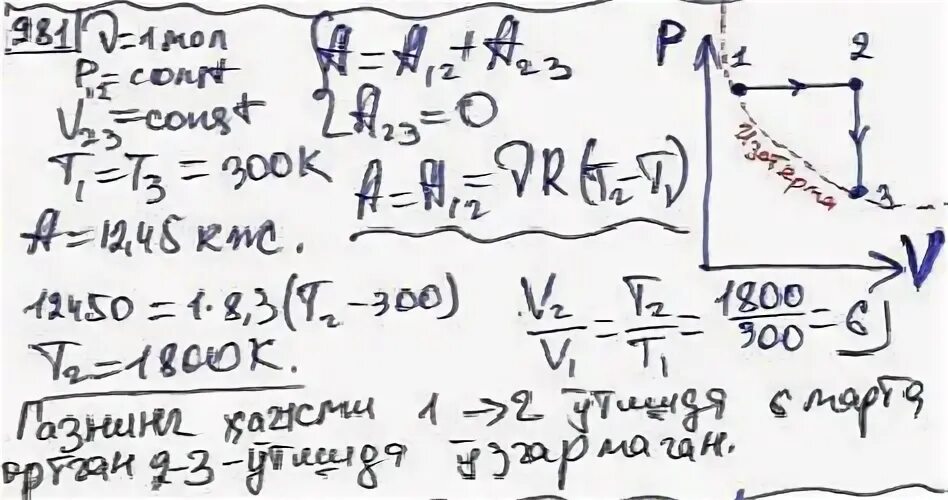 981 ν=1 мол
P₁,₂=const
V₂₃=const
T₁=T₃=300K
A=12,45 кЖ.
A=A₁₂+A₂₃
A₂₃=0
A=A₁₂=νR(T₂-T₁)
P
1
2
3
Изотерма
V
12450=1·8,3(T₂-300)
T₂=1800K.
V₂/V₁=T₂/T₁=1800/300=6
Газнинг ҳажми 1→2 ўтишда 6 марта
ортган 2-3-ўтишда ўзгармаган.